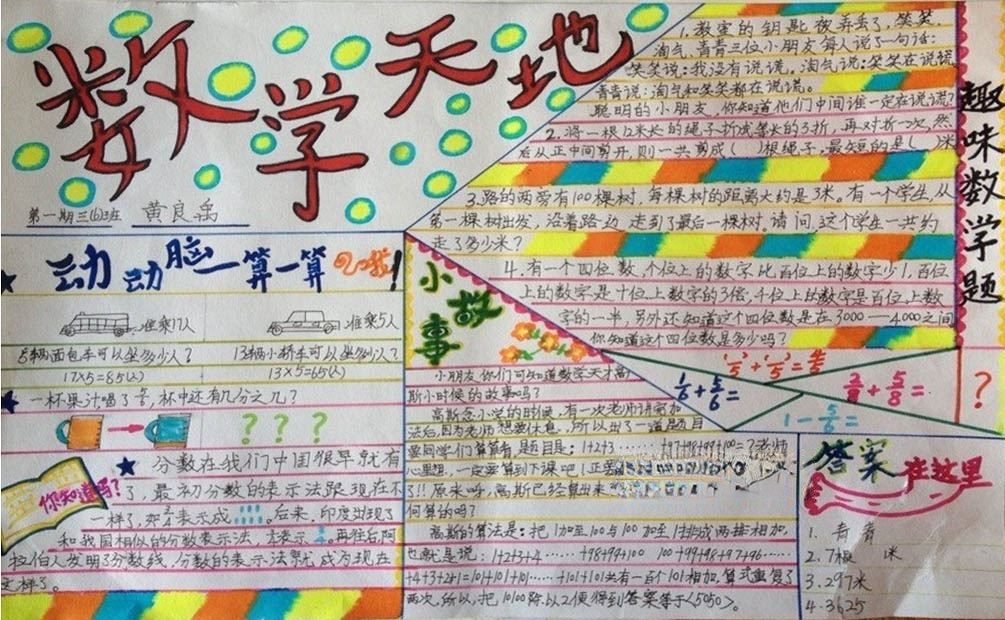 数学天地
第一期三(6)班 黄良禹
1.教室的钥匙被弄丢了,笑笑、
淘气、青青三位小朋友每人说了一句话:
笑笑说:我没有说谎。淘气说:笑笑在说谎
青青说:淘气和笑笑都在说谎。
聪明的小朋友,你知道他们中间谁一定在说谎?
2.将一根12米长的绳子折成等长的3折,再对折一次,然
后从正中间剪开,则一共剪成( )根绳子,最短的是( )米
3.路的两旁有100棵树,每棵树的距离大约是3米。有一个学生,从
第一棵树出发,沿着路边走到了最后一棵树。请问,这个学生一共约
走了多少米?
4.有一个四位数,个位上的数字比百位上的数字少1,百位
上的数字是十位上数字的3倍,千位上的数字是百位上数
字的一半,另外还知道这个四位数是在3000——4000之间
你知道这个四位数是多少吗?
趣味数学题
动动脑一算一算
准乘17人
准乘5人
5辆面包车可以坐多少人?
13辆小轿车可以坐多少人?
17×5=85(人)
13×5=65(人)
一杯果汁喝了 ,杯中还有几分之几?
? ? ?
你知道吗?
分数在我们中国很早就有
了,最初分数的表示法跟现在不
一样了,
表示成 。后来,印度出现了
和我国相似的分数表示法,
表示 。再往后,阿
拉伯人发明了分数线,分数的表示法就成为现在
这样了。
小故事
小朋友你们可知道数学天才高
斯小时候的故事吗?
高斯念小学的时候,有一次老师讲完加
法后,因为老师想要休息,所以出了一道题目
要同学们算算看,题目是:1+2+3……+97+98+99+100=?老师
心里想,一定要算到下课吧!正要
了!!原来呀,高斯已经算出来
何算的吗?
高斯的算法是:把1加至100与100加至1排成两排相加
也就是说:1+2+3+4……+98+99+100 100+99+98+97+96……
+4+3+2+1=101+101+101……+101+101共有一百个101相加,算式重复了
两次,所以,把10100除以2便得到答案等于<5050>。
1/6+5/6=
2/8+5/8=
1-5/6=
?
答案在这里
1. 青青
2.7根 米
3.297米
4.3625